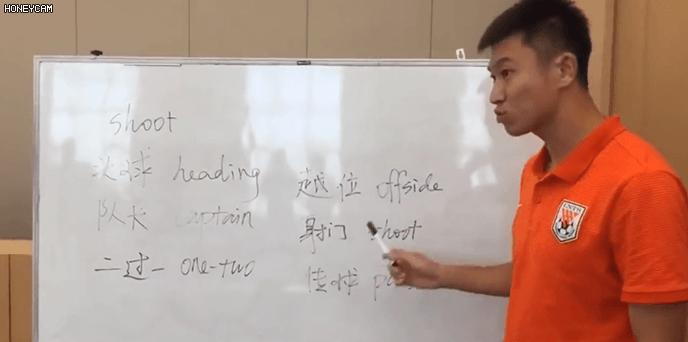 HONEYCAM
shoot
头球 heading
队长 captain
二过一 one-two
越位 offside
射门 shoot
传球